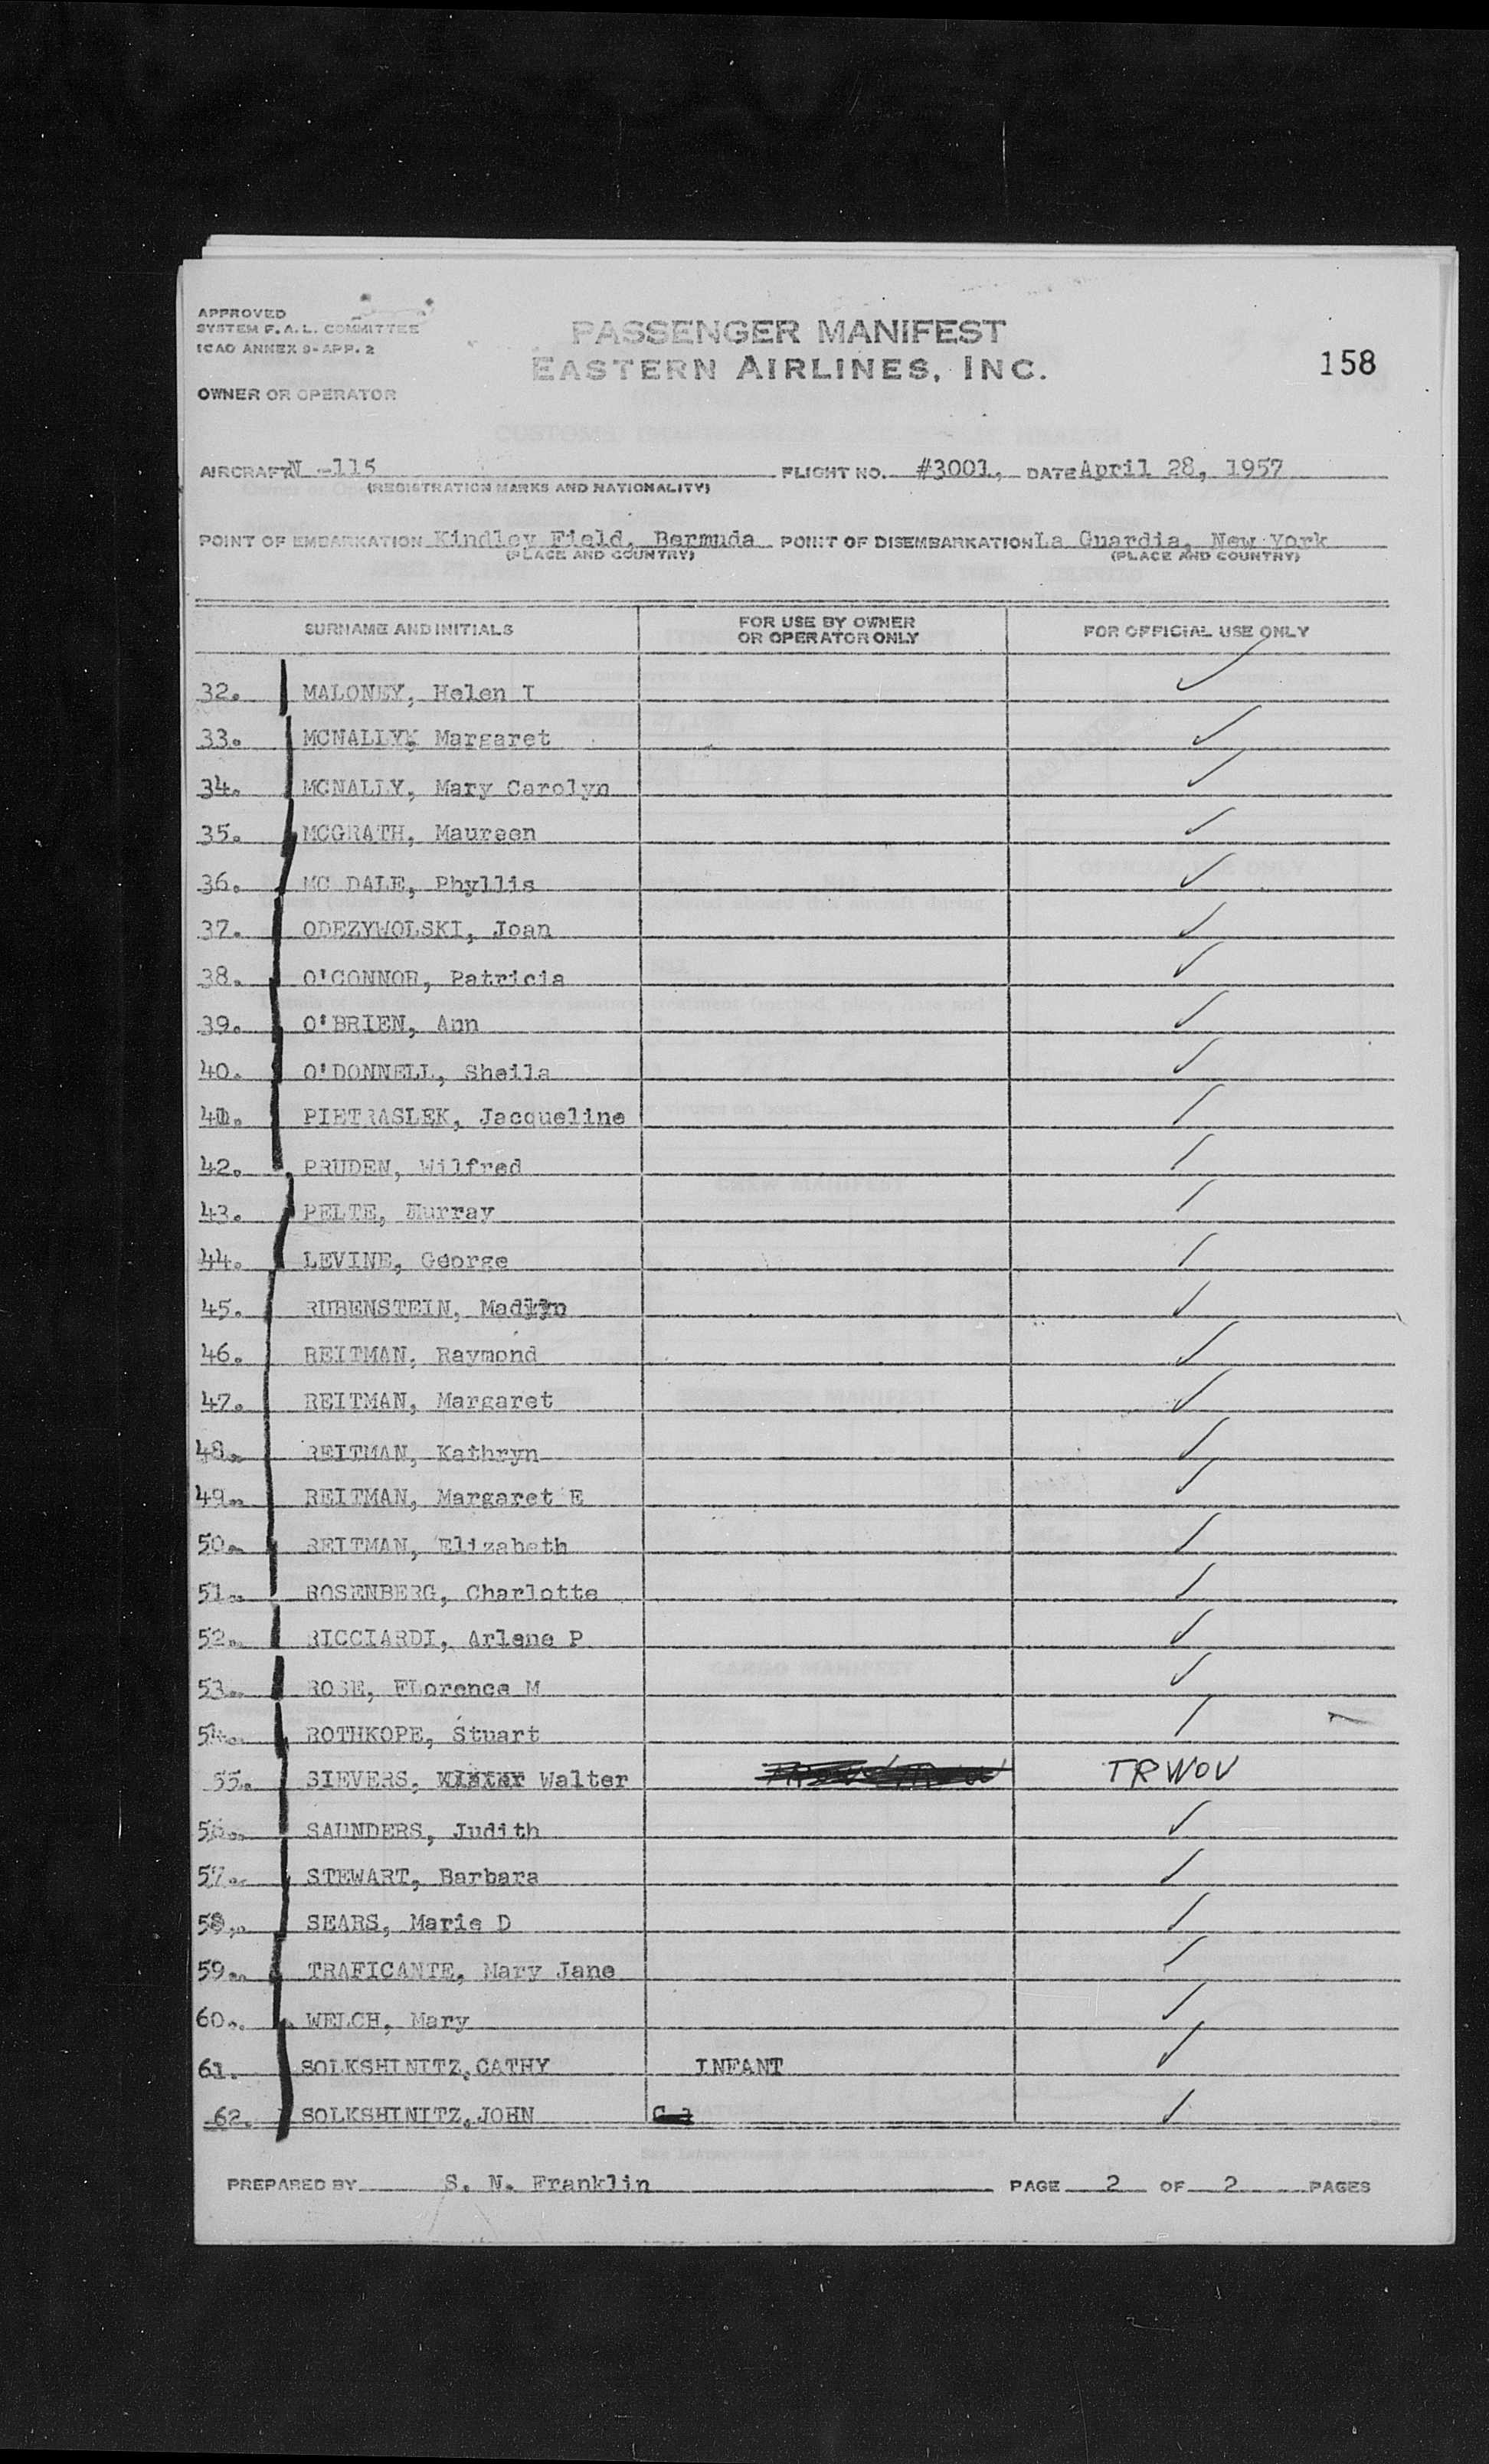 APPROVED
SYSTEM F.A.L. COMMITTEE
ICAO ANNEX 9-APP. 2
PASSENGER MANIFEST
EASTERN AIRLINES, INC.
158
OWNER OR OPERATOR
AIRCRAFT N -115 FLIGHT NO. #3001, DATE April 28, 1957
(REGISTRATION MARKS AND NATIONALITY)
POINT OF EMBARKATION Kindley Field, Bermuda POINT OF DISEMBARKATION La Guardia, New York
(PLACE AND COUNTRY) (PLACE AND COUNTRY)
SURNAME AND INITIALS FOR USE BY OWNER OR OPERATOR ONLY FOR OFFICIAL USE ONLY
32. MALONEY, Helen T ✓
33. MCNALLY, Margaret ✓
34. MCNALLY, Mary Carolyn ✓
35. MCGRATH, Maureen ✓
36. MC DALE, Phyllis ✓
37. ODEZYWOLSKI, Joan ✓
38. O'CONNOR, Patricia ✓
39. O'BRIEN, Ann ✓
40. O'DONNELL, Sheila ✓
41. PIETRASLEK, Jacqueline ✓
42. PRUDEN, Wilfred ✓
43. PELTE, Murray ✓
44. LEVINE, George ✓
45. RUBENSTEIN, Madlyn ✓
46. REITMAN, Raymond ✓
47. REITMAN, Margaret ✓
48. REITMAN, Kathryn ✓
49. REITMAN, Margaret E ✓
50. REITMAN, Elizabeth ✓
51. ROSENBERG, Charlotte ✓
52. RICCIARDI, Arlene P ✓
53. ROSE, FLorence M ✓
54. ROTHKOPE, Stuart ✓
55. SIEVERS, Walter TRWOV
56. SAUNDERS, Judith ✓
57. STEWART, Barbara ✓
58. SEARS, Marie D ✓
59. TRAFICANTE, Mary Jane ✓
60. WELCH, Mary ✓
61. SOLKSHINITZ, CATHY INFANT ✓
62. SOLKSHINITZ, JOHN ✓
PREPARED BY S. N. Franklin PAGE 2 OF 2 PAGES